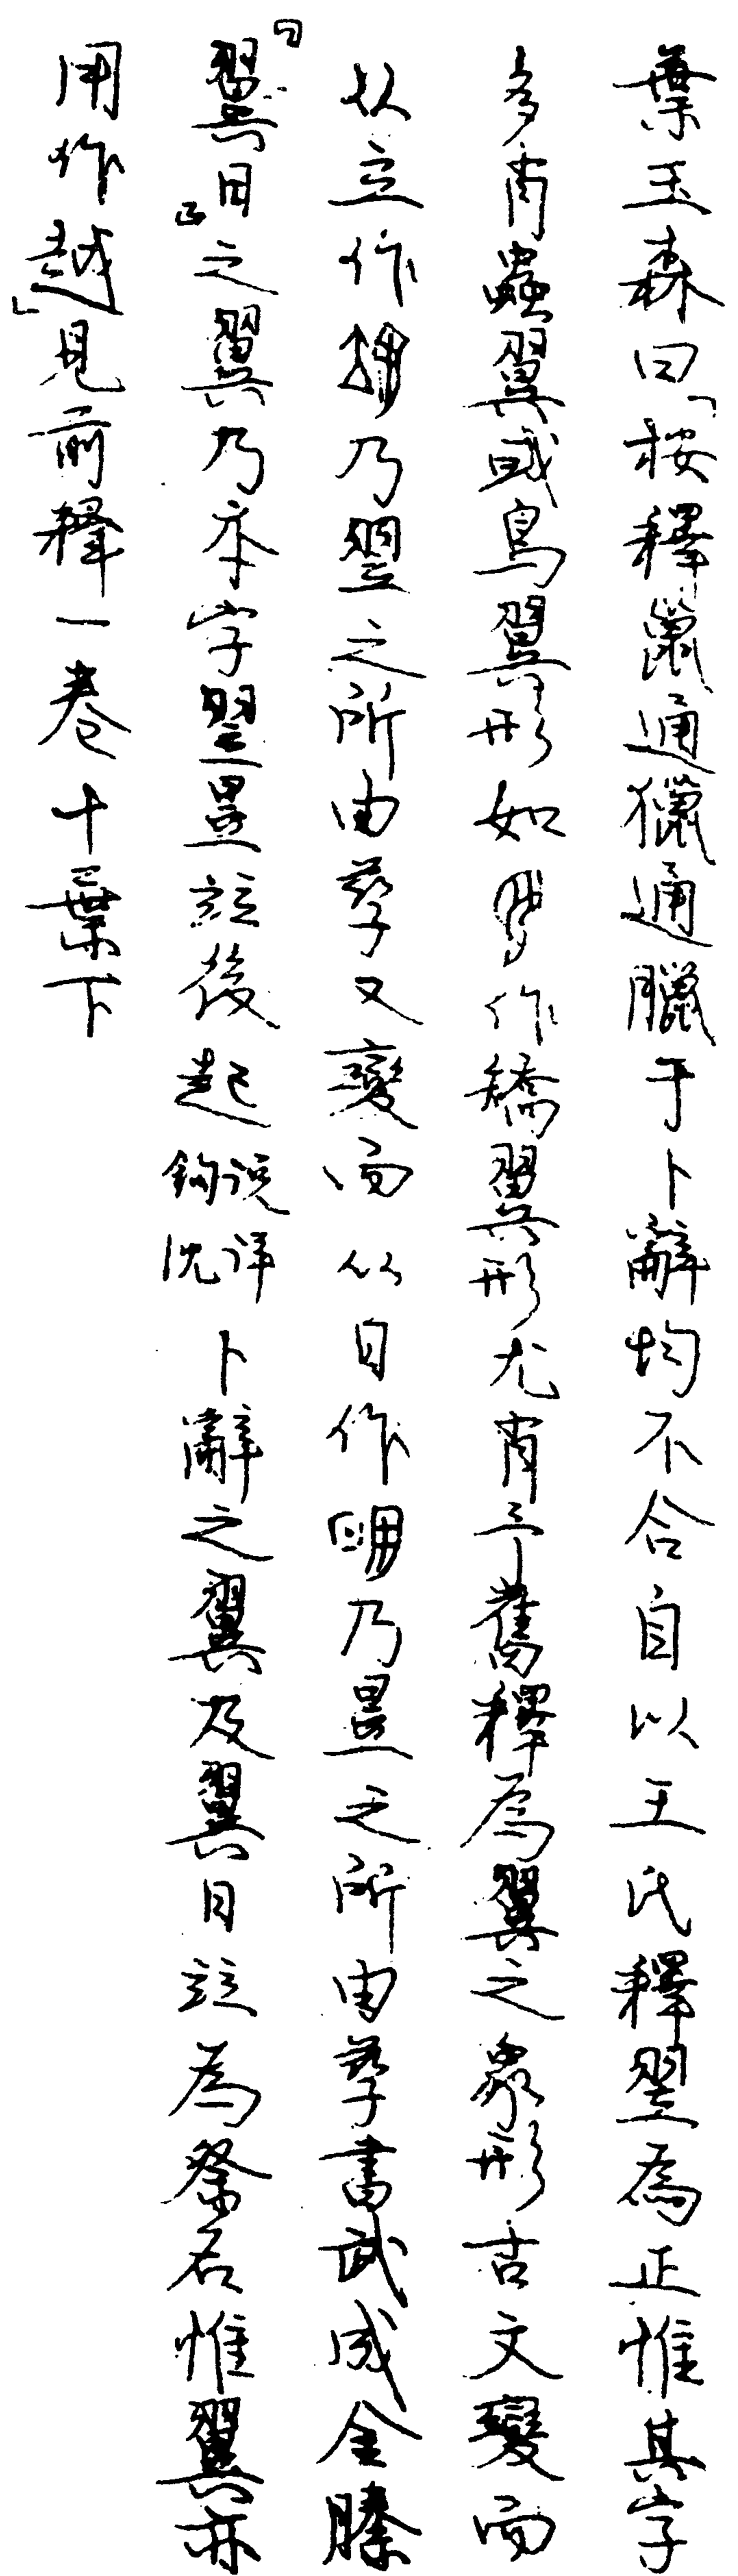 葉玉森曰「桉釋鼠通獵通臘于卜辭均不合自以王氏釋翌為正惟其字
多肖蟲翼或鳥翼形如作矯翼形尤肖予舊釋為翼之象形古文變而
从立作乃翌之所由孳又變而从日作乃昱之所由孳書武成金縢
『翼日』之翼乃本字翌昱竝後起說詳鉤沈卜辭之翼及翼日竝為祭名惟翼亦
用作越」見前釋一卷十葉下